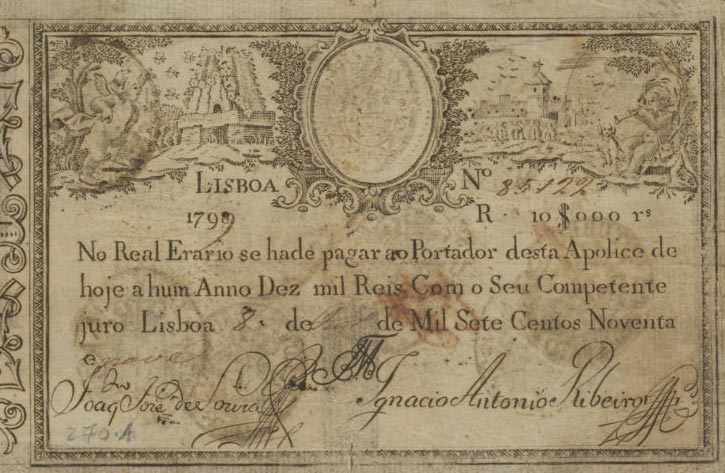 LISBOA Nº 83122
1799 R 10$000 rs
No Real Erario se hade pagar ao Portador desta Apolice de
hoje a hum Anno Dez mil Reis Com o Seu Competente
juro Lisboa 8 de de Mil Sete Centos Noventa
e nove
Joaqm José de Souza Ignacio Antonio Ribeiro
270.A